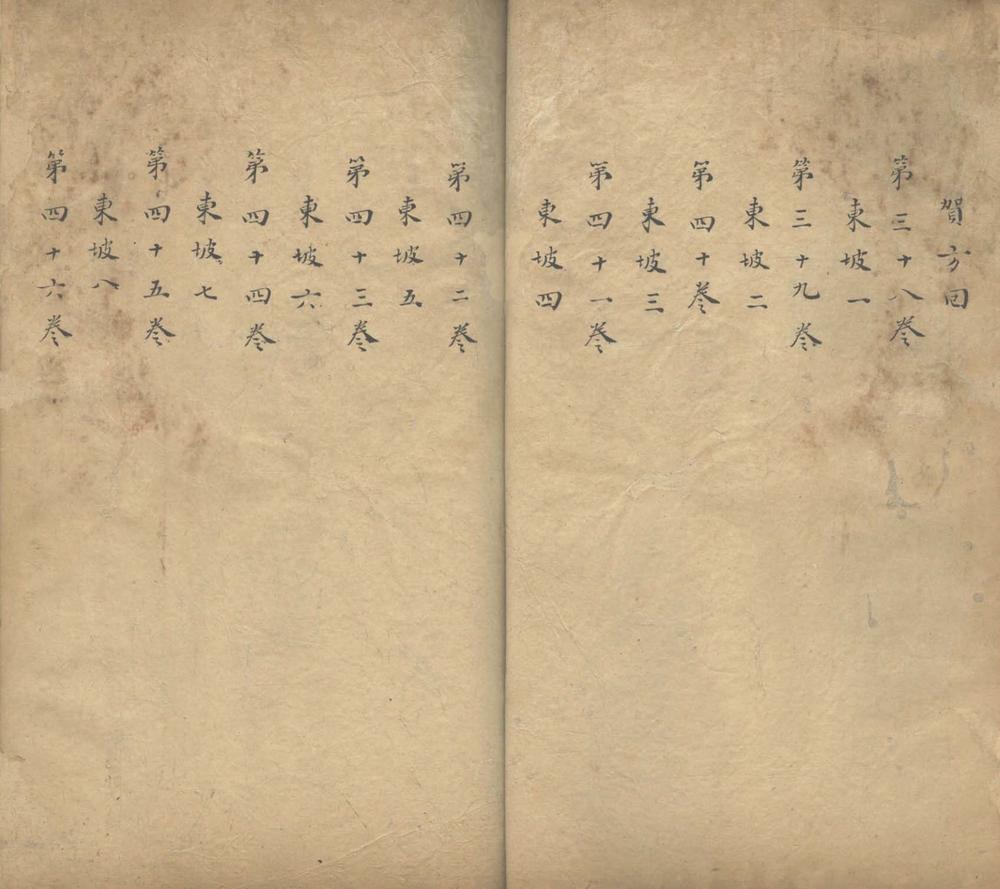 賀方回
第三十八卷
東坡一
第三十九卷
東坡二
第四十卷
東坡三
第四十一卷
東坡四
第四十二卷
東坡五
第四十三卷
東坡六
第四十四卷
東坡七
第四十五卷
東坡八
第四十六卷